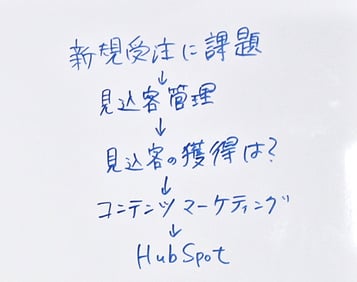 新規受注に課題
↓
見込客管理
↓
見込客の獲得は?
↓
コンテンツマーケティング
↓
HubSpot